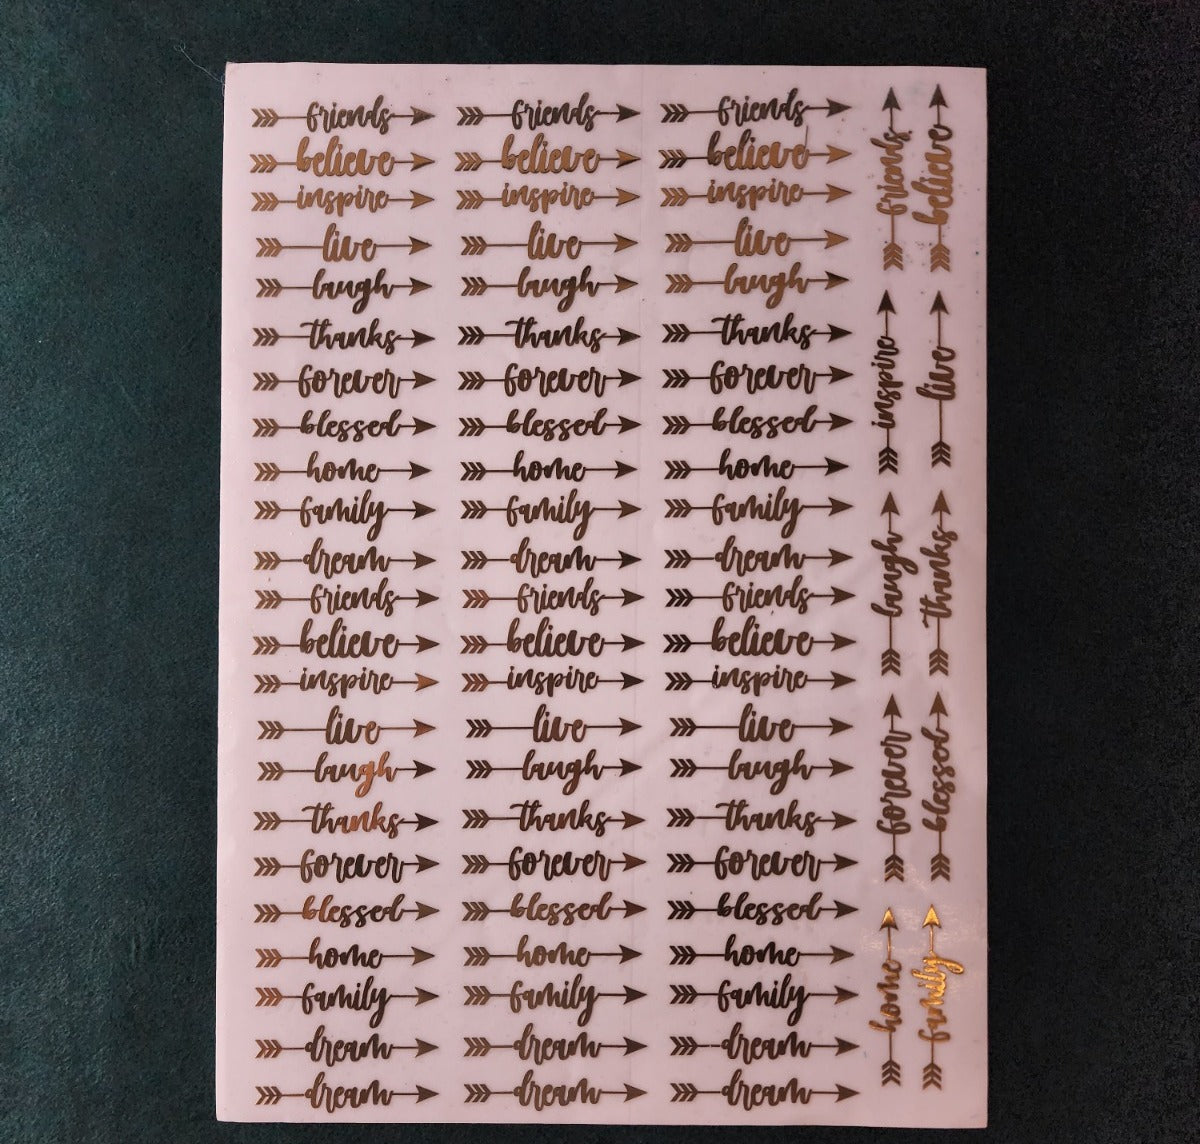 friends friends friends
believe believe believe
inspire inspire inspire
live live live
laugh laugh laugh
thanks thanks thanks
forever forever forever
blessed blessed blessed
home home home
family family family
dream dream dream
friends friends friends
believe believe believe
inspire inspire inspire
live live live
laugh laugh laugh
thanks thanks thanks
forever forever forever
blessed blessed blessed
home home home
family family family
dream dream dream
dream dream dream
friends
believe
inspire
live
laugh
thanks
forever
blessed
home
family